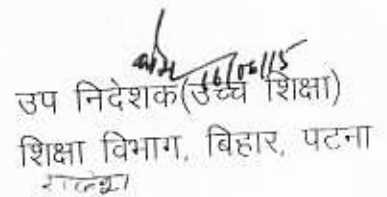 16/06/15
उप निदेशक(उच्च शिक्षा)
शिक्षा विभाग, बिहार, पटना